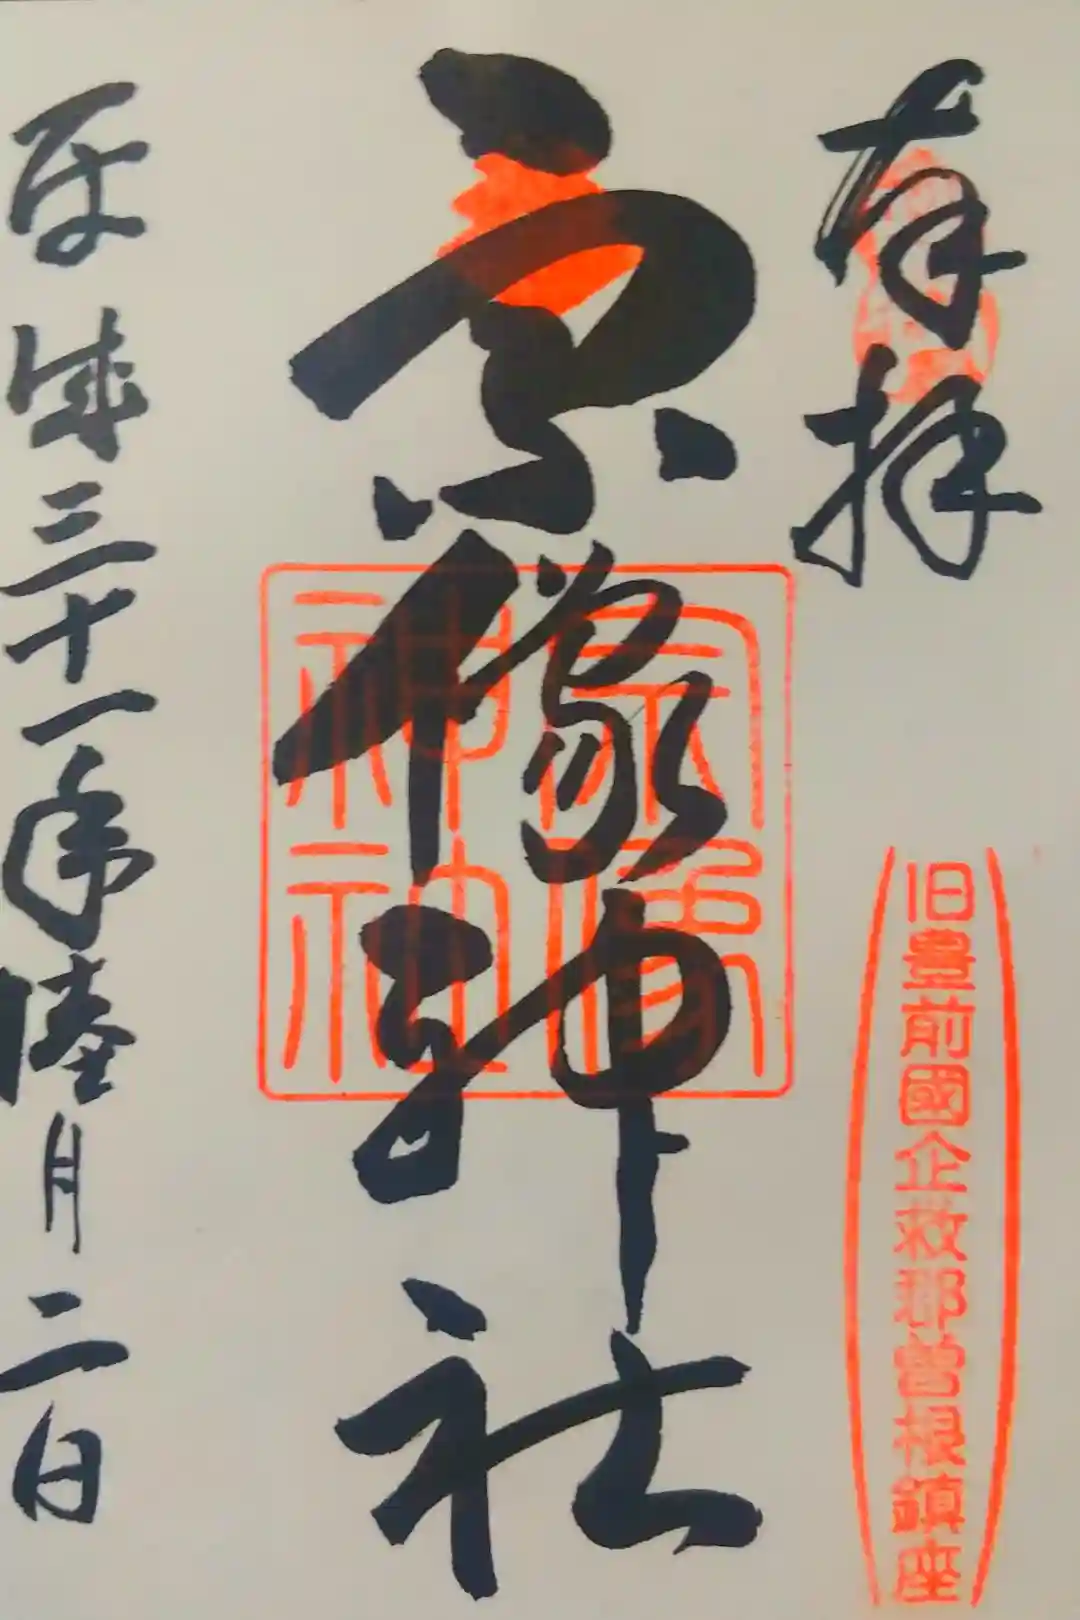 奉拝
旧豊前國企救郡曽根鎮座
宗像神社
宗像神社
平成三十一年陸月二日